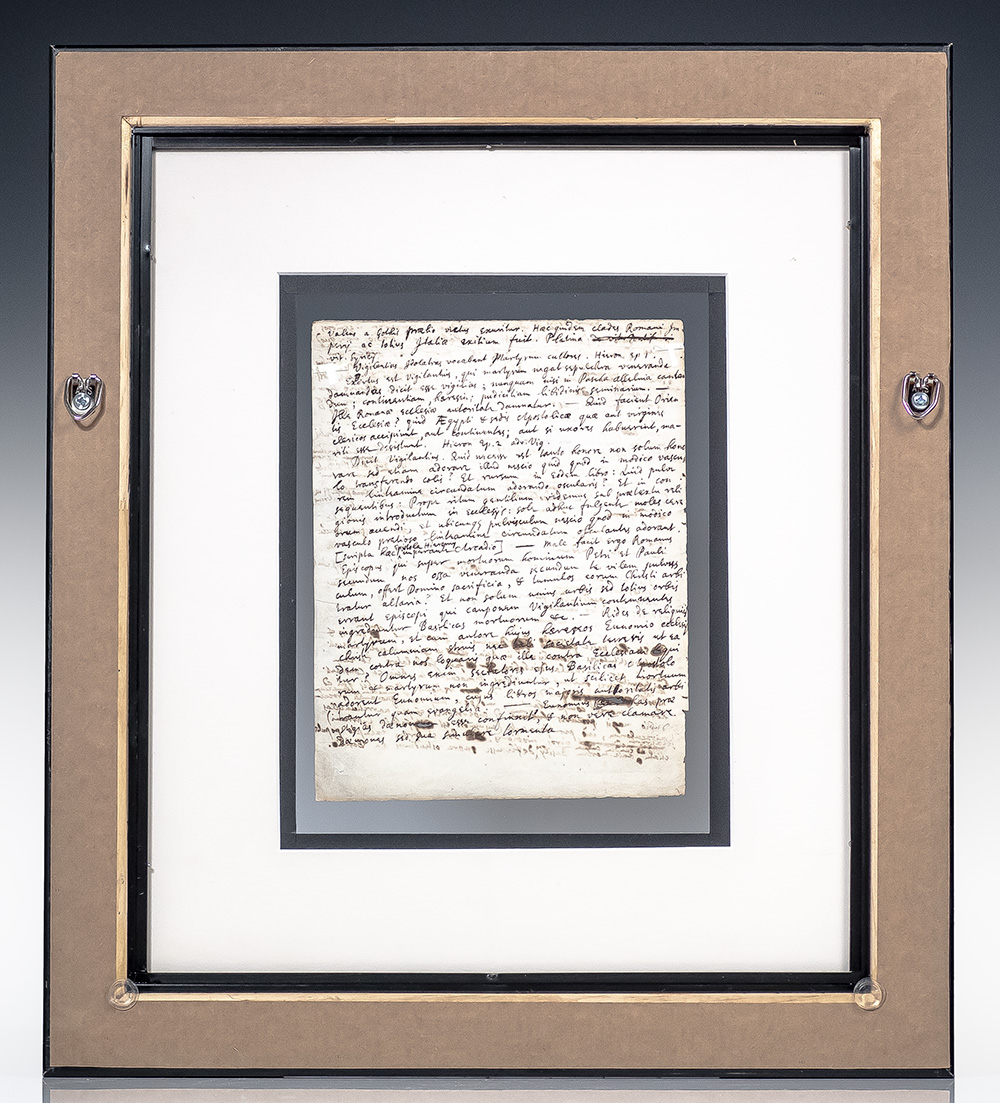 Valens a Gothis prælio victus exuritur. Hæc quidem clades Romani Im-
perij ac totius Italiæ exitium fuit. Platina
vit. Syricij
Vigilantius Idolatras vocabant Martyrum cultores. Hieron ep 1.
Exortus est Vigilantius, qui martyrum negat sepulchra veneranda
damnandas dicit esse vigilias; nunquam nisi in Pascha alleluia cantan
dum; continentiam, hæresin; pudicitiam libidinis seminarium. —
Romanæ Ecclesiæ autoritate damnatur. — Quid facient Orien
tis Ecclesiæ? quid Ægypti & sedis Apostolicæ quæ aut virgines
clericos accipiunt, aut continentes; aut si uxores habuerint, ma-
riti esse desistunt. Hieron Ep. 2 adv. Vig.
Dicit Vigilantius. Quid necesse est tanto honore non solum hono
rare sed etiam adorare illud nescio quid quod in modico vascu
lo transferendo colis? Et rursum in eodem libro: Quid pulve
rem linteamine circundatum adorando oscularis? Et in con
sequentibus: Prope ritum gentilium videmus sub prætextu reli
gionis introductum in Ecclesijs: sole adhuc fulgente moles cere
orum accendi, et ubicunque pulvisculum nescio quod in modico
vasculo pretioso linteamine circundatum osculantes adorant.
[scripta hæc epistola Hieronymi imperante Arcadio] — Male facit ergo Romanus
Episcopus qui super mortuorum hominum Petri et Pauli
secundum nos ossa veneranda secundum te vilem pulvis-
culum, offert Domino sacrificia, & tumulos eorum Christi arbi
tratur altaria? Et non solum unius urbis sed totius orbis
errant Episcopi qui cauponem Vigilantium contemnentes
ingrediuntur Basilicas mortuorum &c. — Rides de reliquijs
martyrum, et cum autore hujus hæreseos Eunomio ecclesijs
Christi calumniam struis nec tali societate terreris ut ea
dem contra nos loquaris quæ ille contra Ecclesiam loqui
tur? Omnes enim sectatores ejus Basilicas Apostolo
rum et martyrum non ingrediuntur, ut scilicet mortuum
adorent Eunomium, cujus libros majoris autoritatis arbi
trantur quam evangelia. — Eunomius has præ
stigias dæmonum esse confinxit, & non vere clamare
dæmones sed sua tormenta